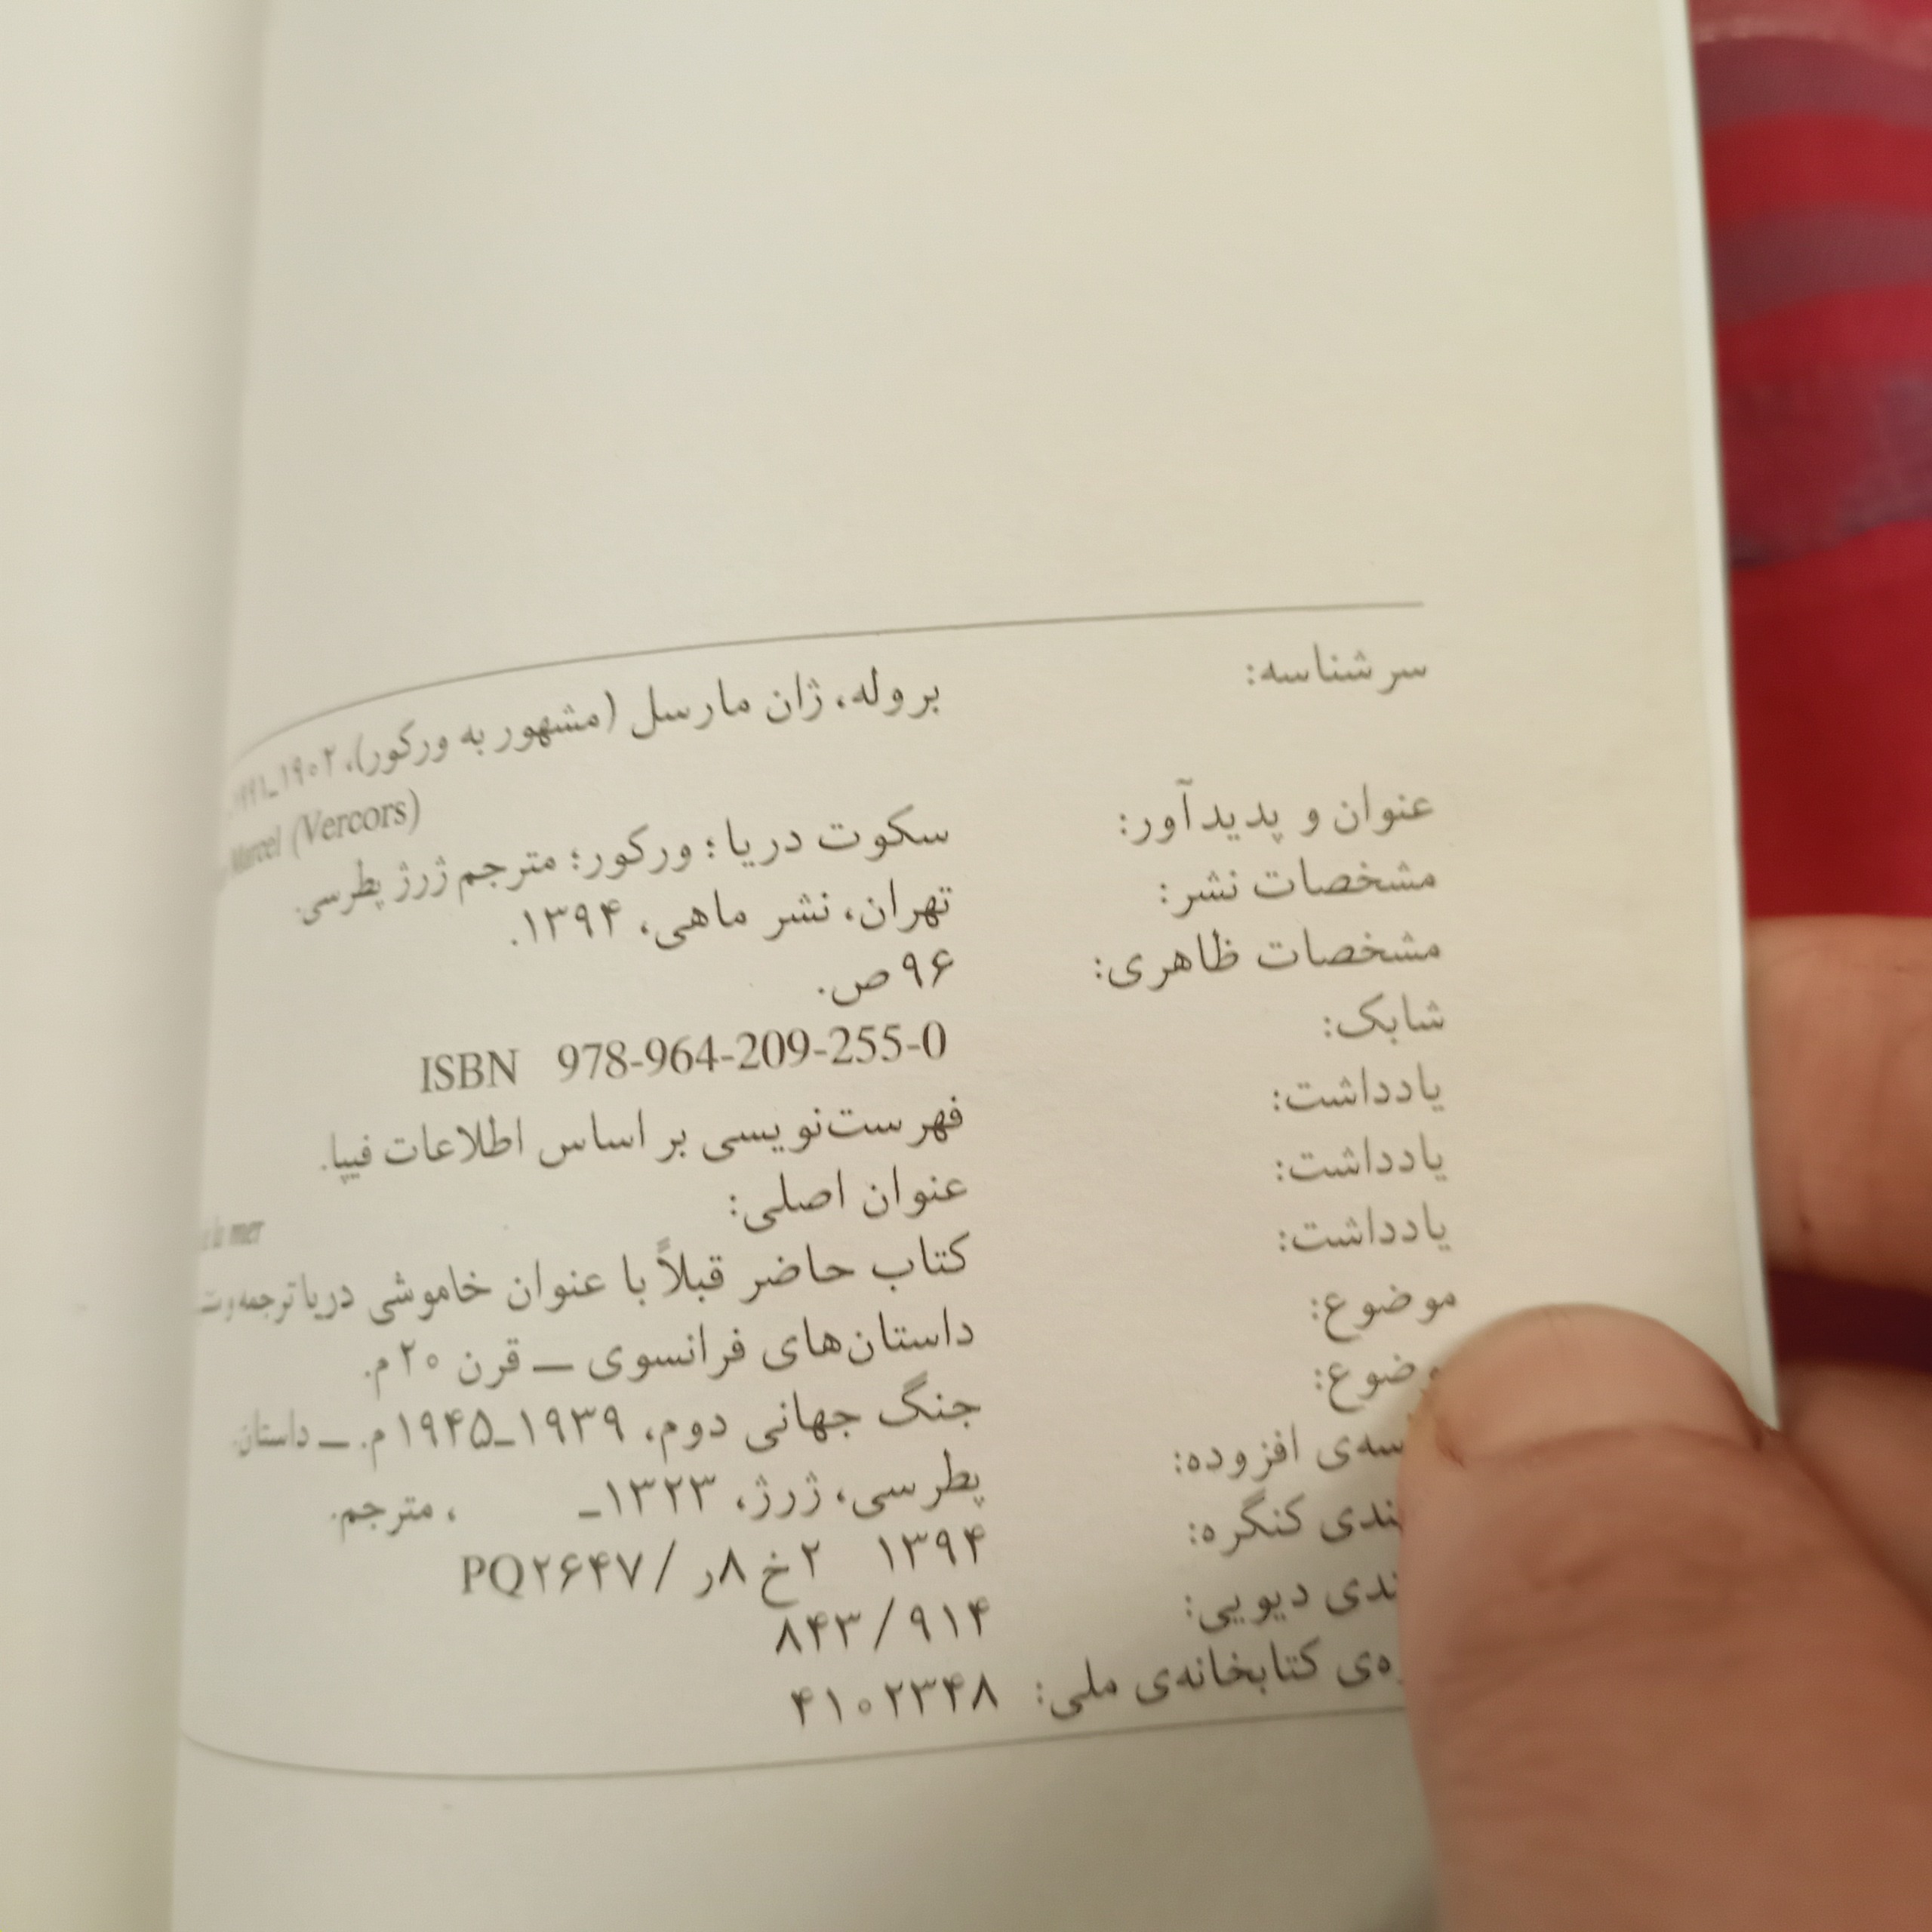 سرشناسه: بروله، ژان مارسل (مشهور به ورکور)، ۱۹۰۲ـ۱۹۹۱
Marcel (Vercors)
عنوان و پدیدآور: سکوت دریا؛ ورکور؛ مترجم ژرژ پطرسی.
مشخصات نشر: تهران، نشر ماهی، ۱۳۹۴.
مشخصات ظاهری: ۹۶ ص.
شابک: ISBN 978-964-209-255-0
یادداشت: فهرست‌نویسی بر اساس اطلاعات فیپا.
یادداشت: عنوان اصلی: la mer
یادداشت: کتاب حاضر قبلاً با عنوان خاموشی دریا ترجمه و
موضوع: داستان‌های فرانسوی ـ قرن ۲۰ م.
وضوع: جنگ جهانی دوم، ۱۹۳۹ـ۱۹۴۵ م. ـ داستان.
سه‌ی افزوده: پطرسی، ژرژ، ۱۳۲۳ـ ، مترجم.
ندی کنگره: ۱۳۹۴ ۲خ ۸ر / PQ۲۶۴۷
ندی دیویی: ۸۴۳/۹۱۴
ه‌ی کتابخانه‌ی ملی: ۴۱۰۲۳۴۸